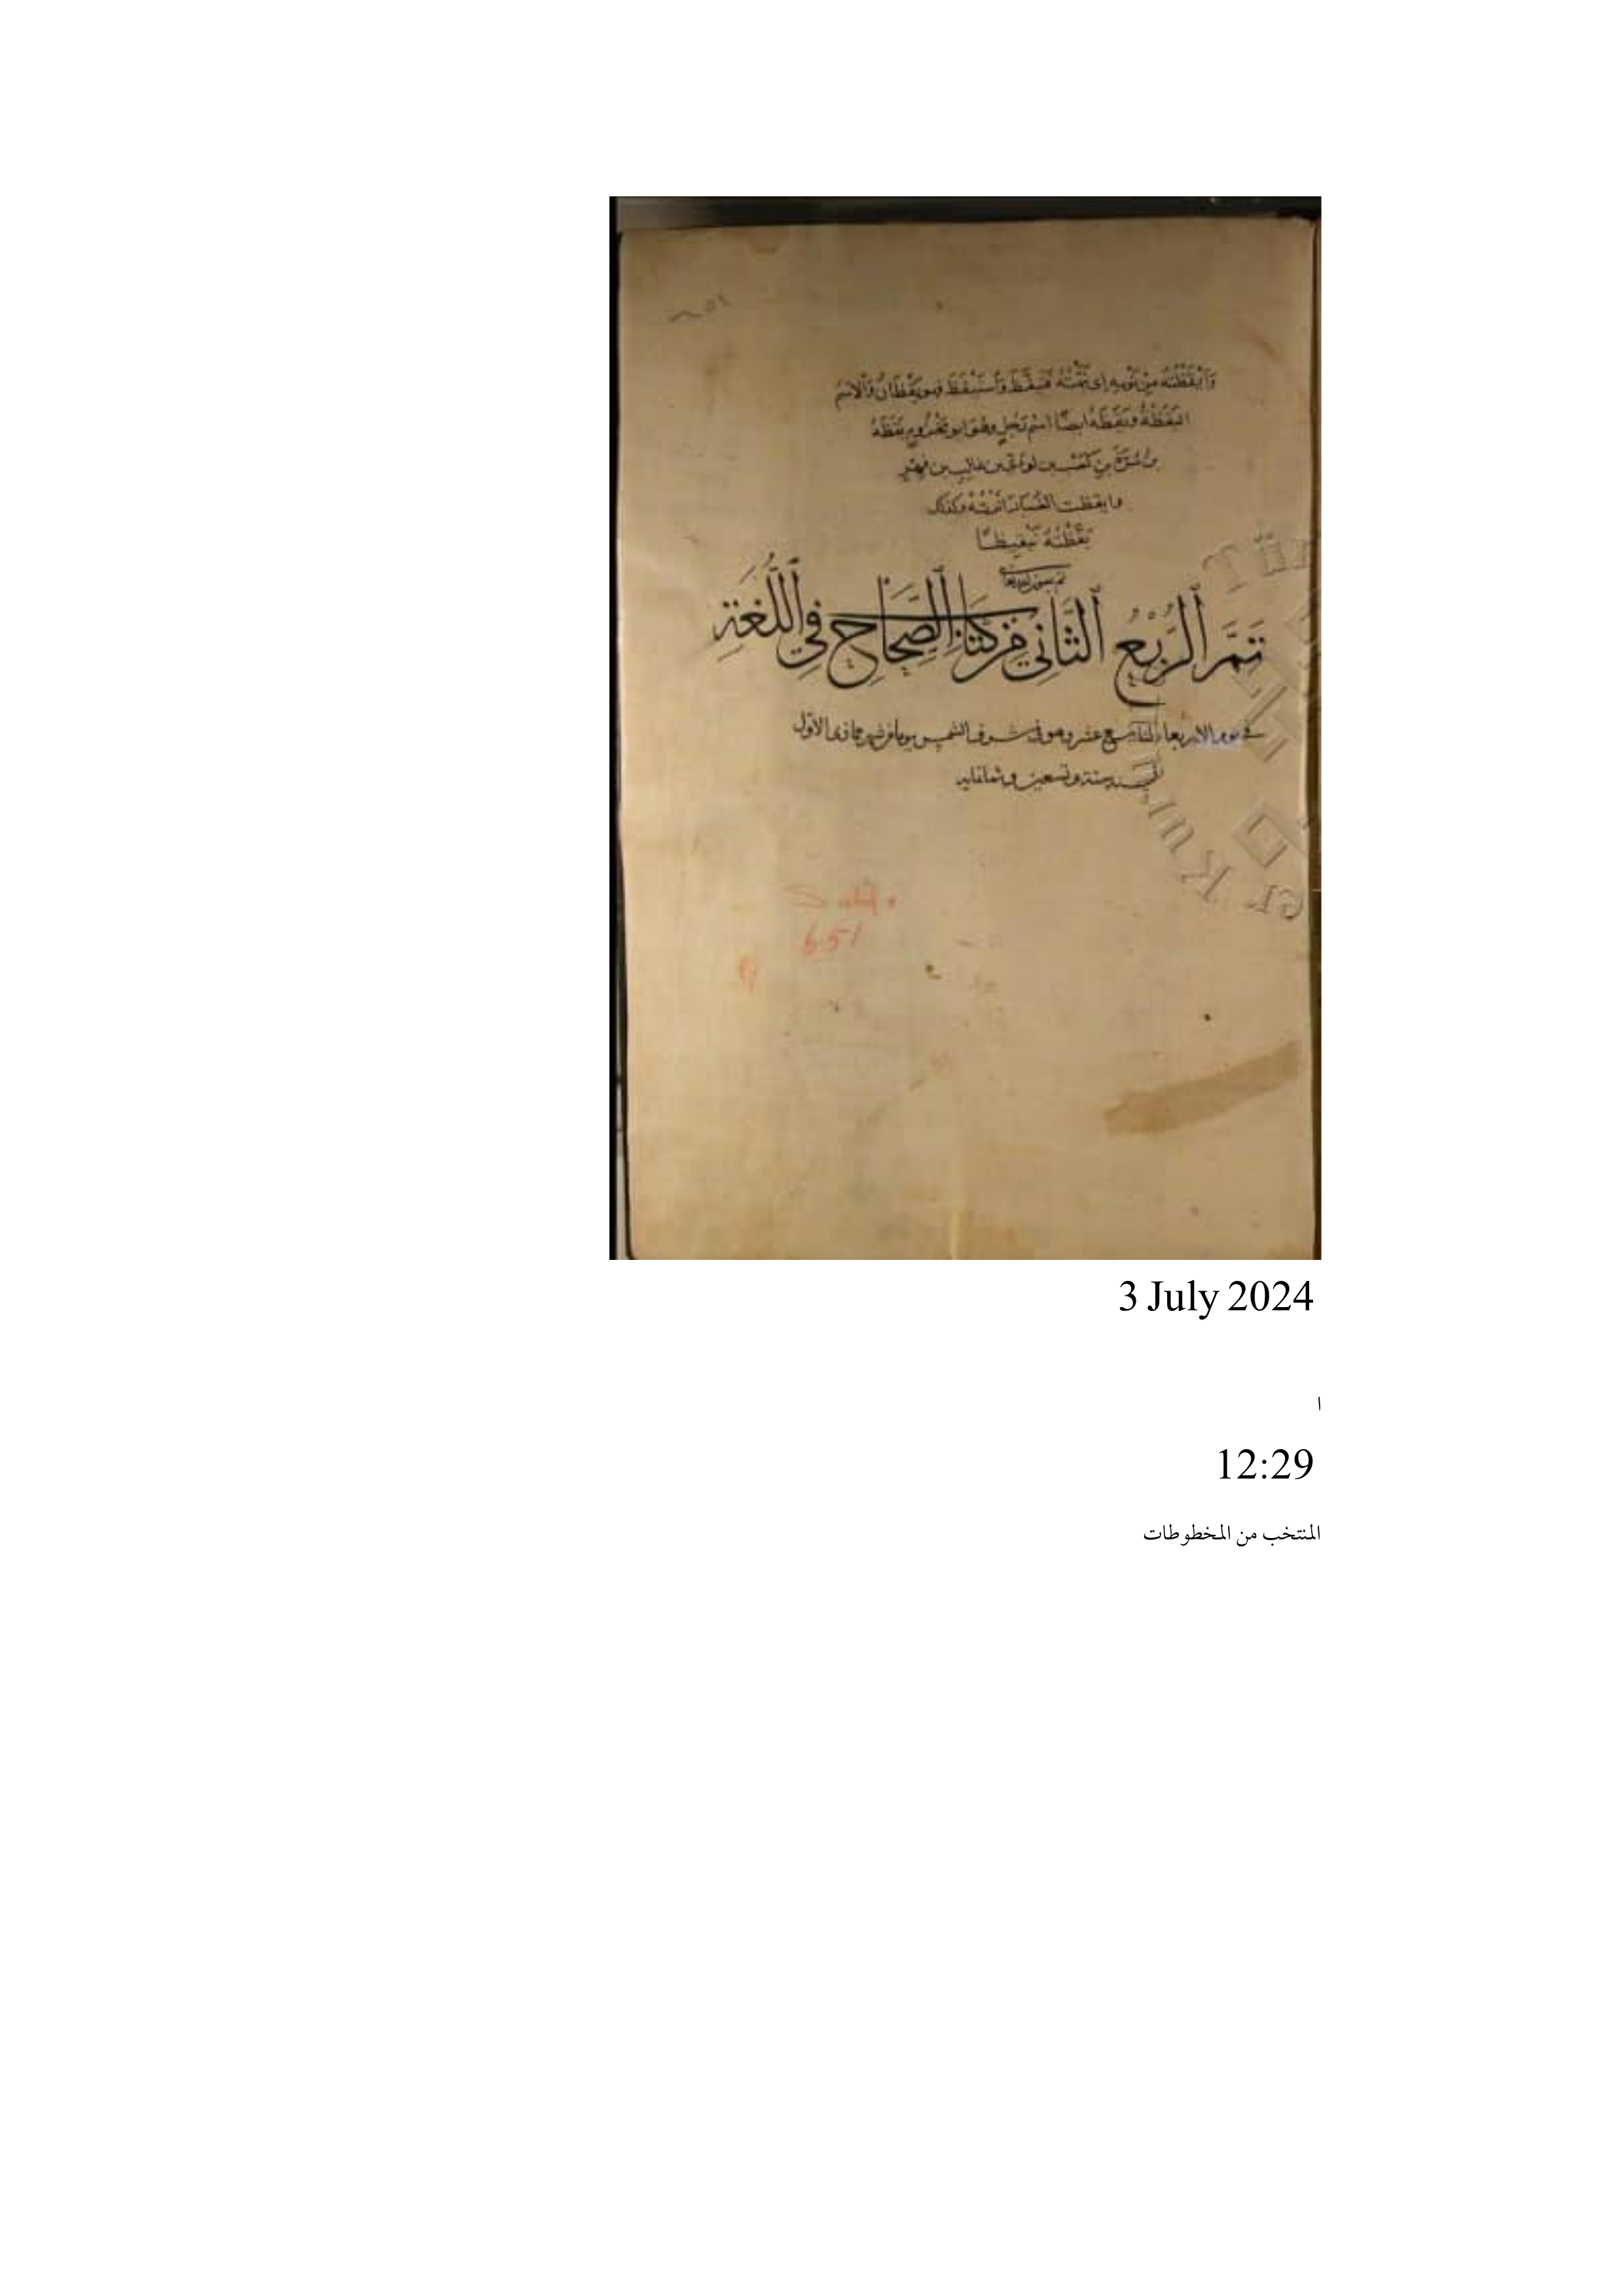 وَأَيْقَظْتُهُ مِنْ نَوْمِهِ اى نَبَّهْتُهُ فَتَيَقَّظَ وَاسْتَيْقَظَ فهو يَقْظَانُ وَالاسْمُ
اليَقَظَةُ ويَقَظَةُ ايضًا اسْمُ رَجُلٍ وهُوَ ابو مَخْزُومٍ يَقَظَةُ
بن مُرَّةَ بنِ كَعْبِ بن لؤى بن غالِبِ بن فِهْرٍ
وايقظت الغُبَارَ اثَرْتُهُ وكذلك
يَقَّظْتُهُ تَيْقِيظًا
تَمَّ الرُّبْعُ الثَّانِي مِنْ كِتَابِ الصِّحَاحِ فِي اللُّغَةِ
فى يوم الاربعاء التاسع عشر وهو فى شرف الشمس يوما من شهر جمادى الاول
سنة ستة وتسعين وثمانمايه
651
3 July 2024
ا
12:29
المنتخب من المخطوطات